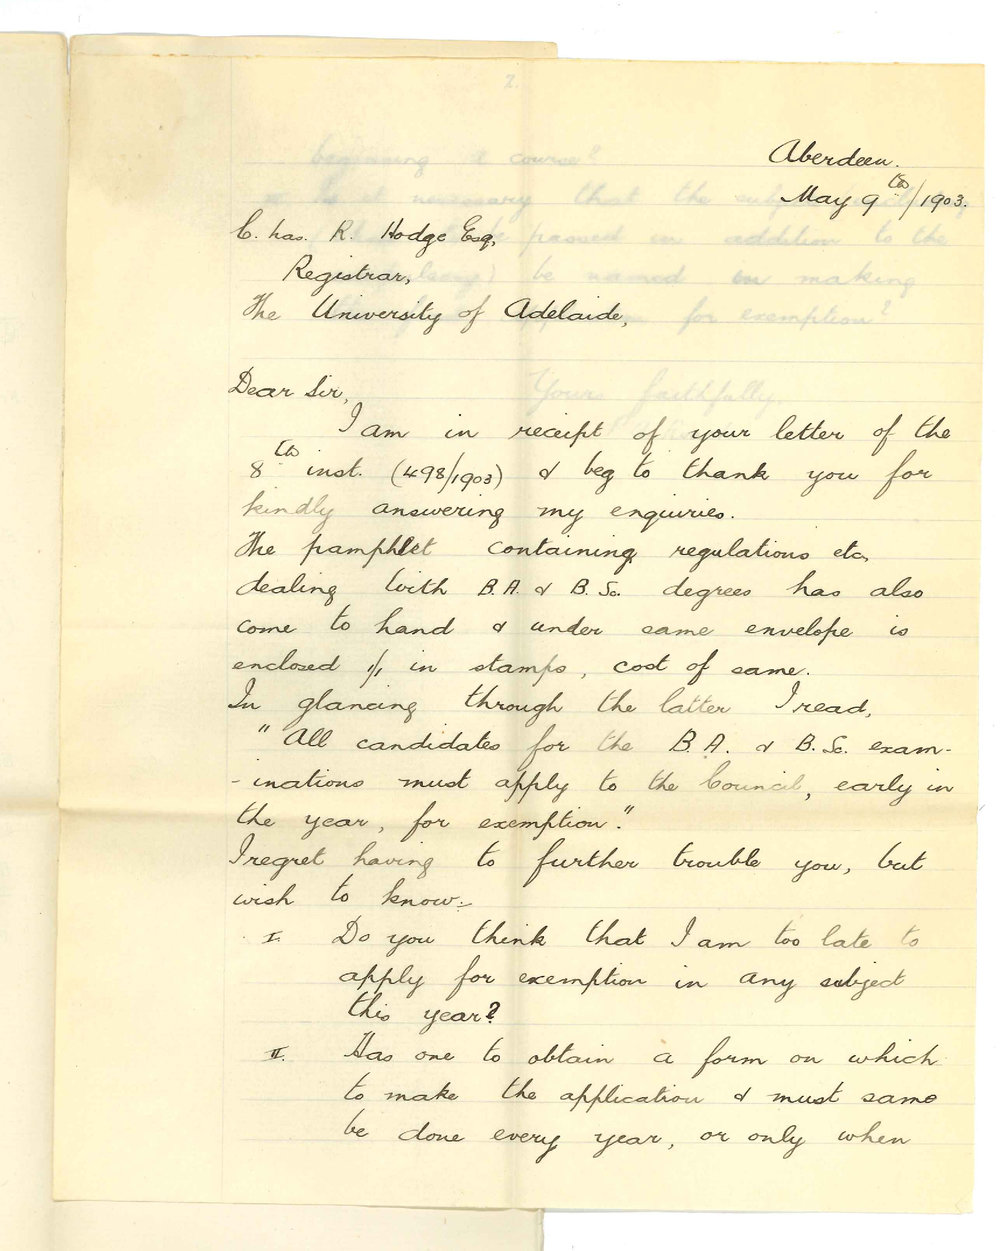 Aberdeen.
May 9th/1903.
C. has. R. Hodge Esq,
Registrar,
The University of Adelaide,
Dear Sir,
I am in receipt of your letter of the
8th inst. (498/1903) & beg to thank you for
kindly answering my enquiries.
The pamphlet containing regulations etc,
dealing with B.A. & B. Sc. degrees has also
come to hand & under same envelope is
enclosed 1/1 in stamps, cost of same.
In glancing through the latter I read,
"All candidates for the B.A. & B. Sc. exam-
-inations must apply to the Council, early in
the year, for exemption."
I regret having to further trouble you, but
wish to know:-
I. Do you think that I am too late to
apply for exemption in any subject
this year?
II. Has one to obtain a form on which
to make the application & must same
be done every year, or only when
2.
beginning a course?
Is it necessary that the
be passed in addition to the
be named on making
for exemption?
Yours faithfully,